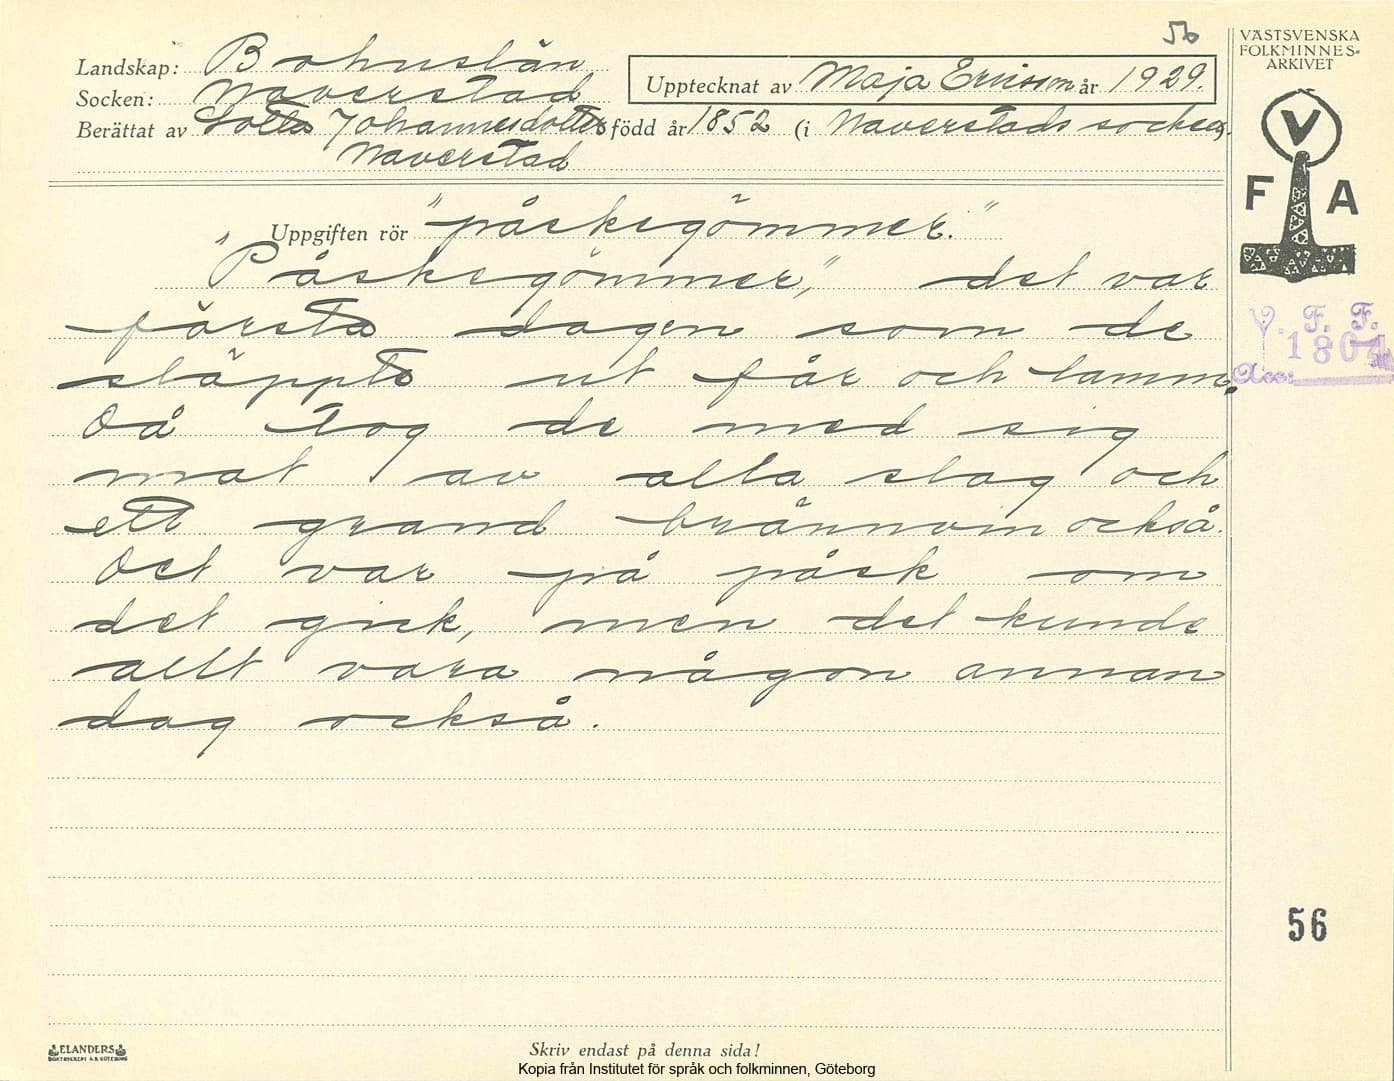 56
VÄSTSVENSKA
FOLKMINNES-
ARKIVET
Landskap: Bohuslän
Upptecknat av Maja Ericsson år 1929.
Socken: Naverstad
Berättat av Lotta Johannesdotter född år 1852 (i Naverstads socken).
Naverstad
V
F A
Uppgiften rör "påskegömmer."
"Påskegömmer," det var
första dagen som de
släppte ut får och lamm.
Då tog de med sig
mat av alla slag och
ett grand brännvin också.
Det var på påsk om
det gick, men det kunde
allt vara någon annan
dag också.
V. F. F.
Acc:
56
ELANDERS
BOKTRYCKERI A.B. GÖTEBORG
Skriv endast på denna sida!
Kopia från Institutet för språk och folkminnen, Göteborg